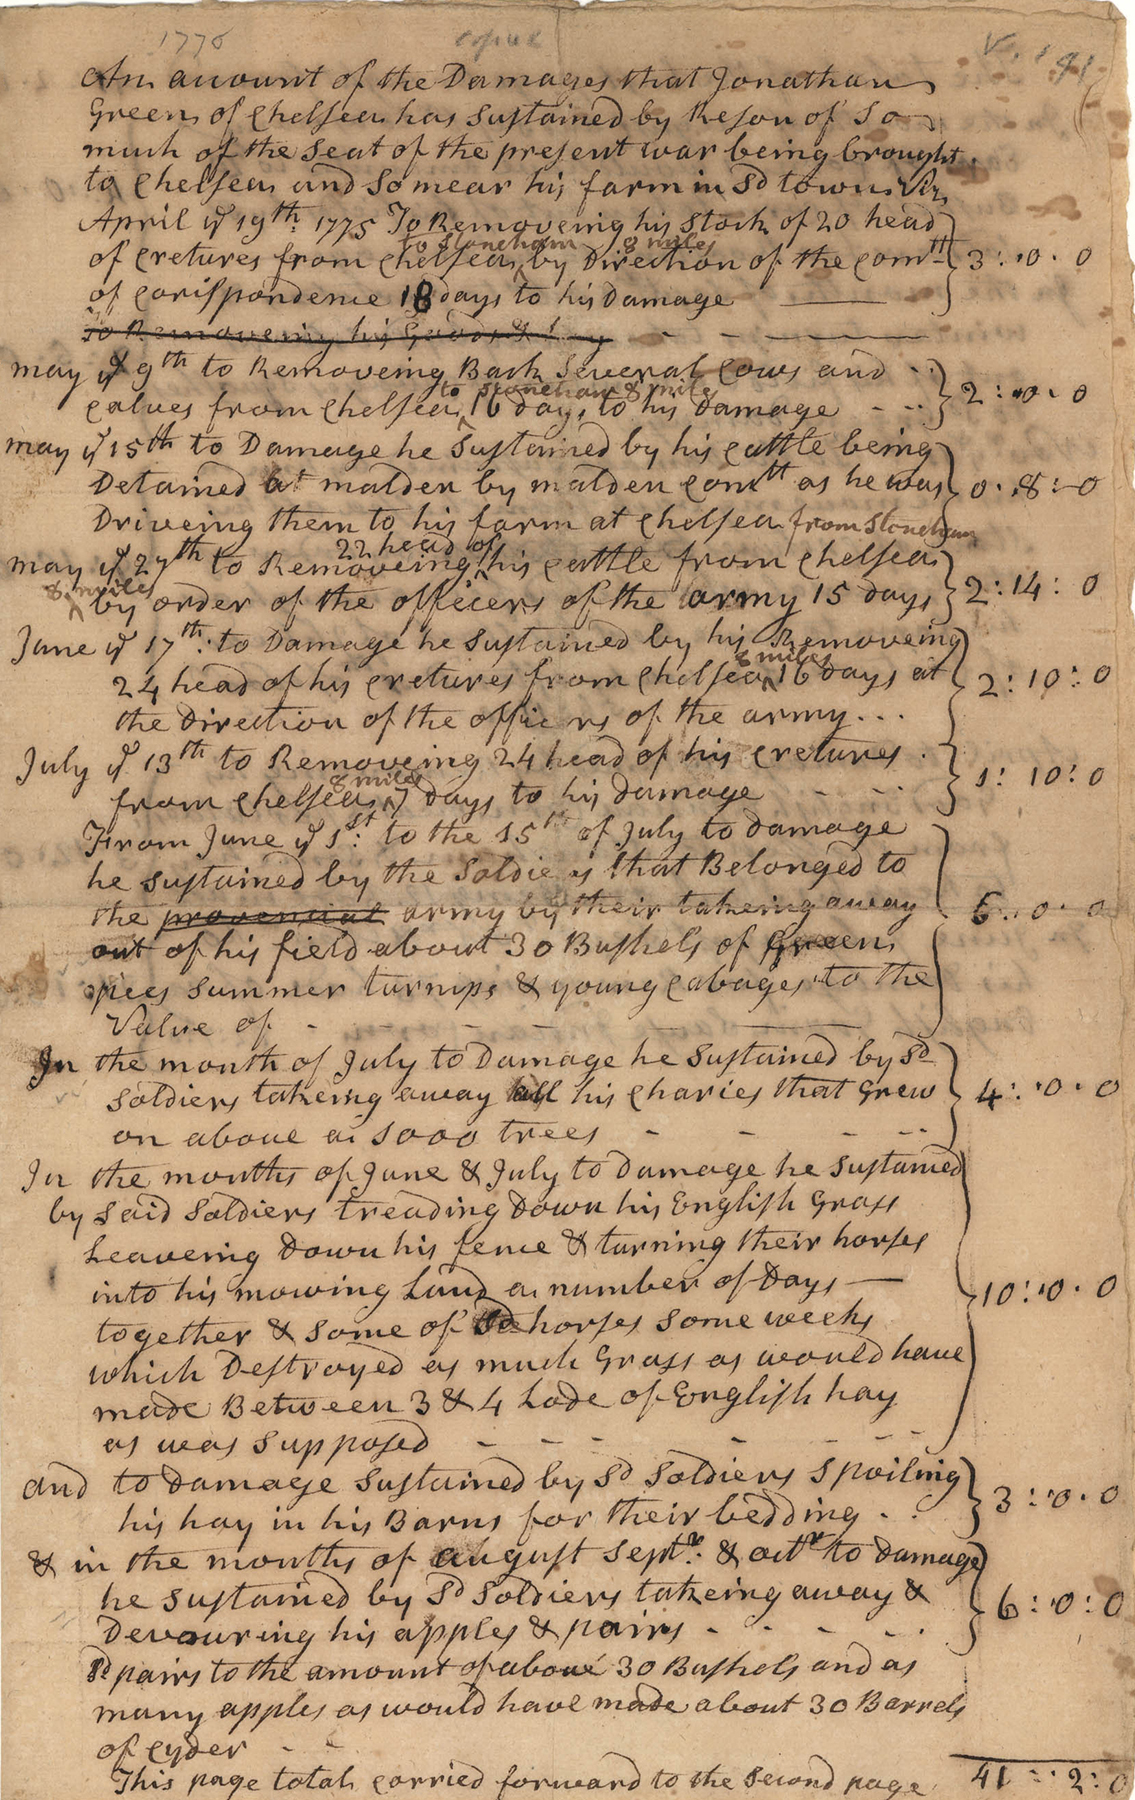 1776
An account of the Damages that Jonathan
Green of Chelsea has sustained by Reson of So
much of the Seat of the present war being brought
to Chelsea and so near his farm in Sd town Viz
April ye 19th: 1775 To Removeing his Stock of 20 head
to Stoneham 8 miles
of cretures from Chelsea by Direction of the Comtt 3:0.0
of Corispondence 18 days to his Damage
To Removeing his Goods &
may ye 9th to Removeing Back Several Cows and
to Stoneham 8 miles
calves from Chelsea 16 days to his Damage 2:0.0
may ye 15th to Damage he Sustained by his cattle being
Detained at malden by malden Comtt as he was 0.8:0
Driveing them to his farm at Chelsea from Stoneham
22 head of
may ye 27th to Removeing his cattle from Chelsea
8 miles
by order of the officers of the army 15 days 2:14:0
June ye 17th: to Damage he Sustained by his Removeing
8 miles
24 head of his cretures from Chelsea 16 days at 2:10:0
the Direction of the officers of the army...
July ye 13th to Removeing 24 head of his cretures
8 miles
from Chelsea 7 days to his damage 1:10:0
From June ye 1st: to the 15th of July to damage
he sustained by the Soldiers that Belonged to
the provencial army by their takeing away 6.0.0
out of his field about 30 Bushels of Green
pies summer turnips & young cabages to the
Value of
In the month of July to Damage he Sustained by Sd
Soldiers takeing away all his charies that Grew 4:0.0
on above a 1000 trees
In the months of June & July to damage he sustained
by Said Soldiers treading Down his English Grass
Leaveing Down his fence & turning their horses
into his mowing Land a number of Days 10:0.0
together & some of Sd horses some weeks
which Destroyed as much Grass as would have
made Between 3 & 4 Lode of English hay
as was Supposed
and to Damage Sustained by Sd Soldiers Spoiling
his hay in his Barns for their bedding 3:0.0
& in the months of august Septr: & octr to damage
he Sustained by Sd Soldiers takeing away & 6:0:0
Devouring his apples & pairs
Sd pairs to the amount of above 30 Bushels and as
many apples as would have made about 30 Barrels
of Cyder
This page total carried forward to the Second page 41:2:0